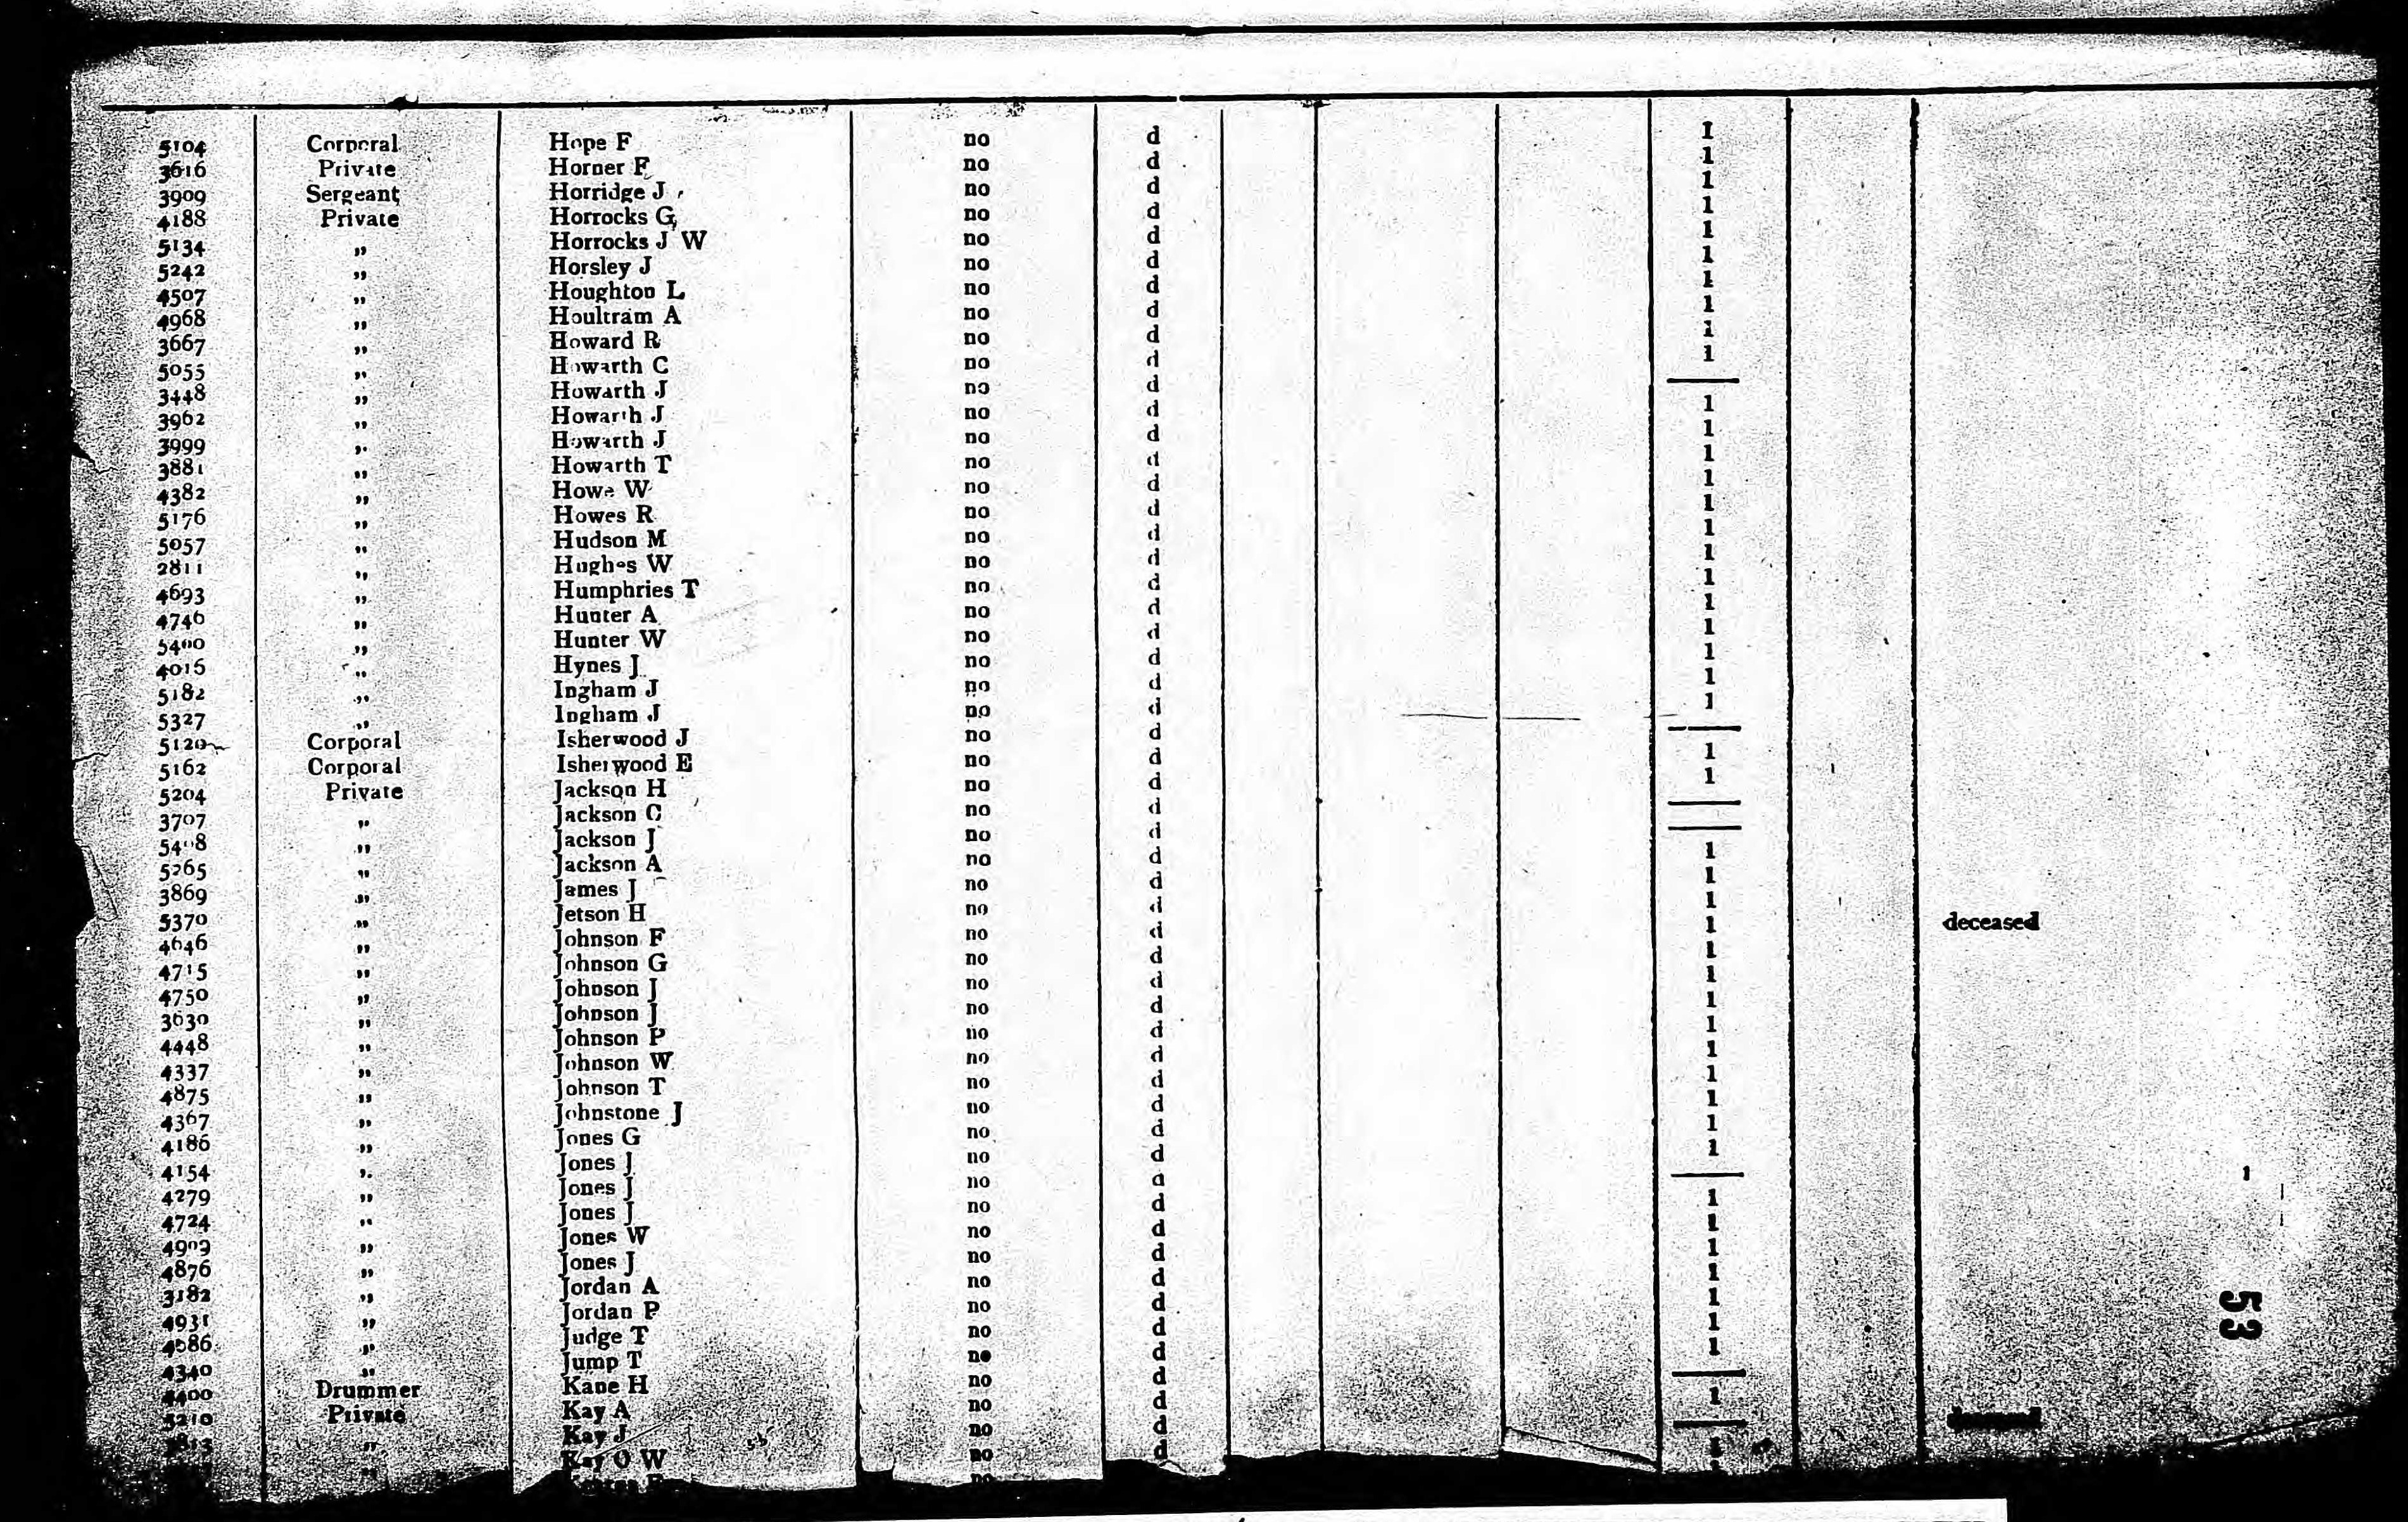 5104 Corporal Hope F no d 1
3616 Private Horner F no d 1
3909 Sergeant Horridge J no d 1
4188 Private Horrocks G no d 1
5134 ,, Horrocks J W no d 1
5242 ,, Horsley J no d 1
4507 ,, Houghton L no d 1
4968 ,, Houltram A no d 1
3667 ,, Howard R no d 1
5055 ,, Howarth C no d 1
3448 ,, Howarth J no d —
3962 ,, Howarth J no d 1
3999 ,, Howarth J no d 1
3881 ,, Howarth T no d 1
4382 ,, Howe W no d 1
5176 ,, Howes R no d 1
5057 ,, Hudson M no d 1
2811 ,, Hughes W no d 1
4693 ,, Humphries T no d 1
4746 ,, Hunter A no d 1
5400 ,, Hunter W no d 1
4015 ,, Hynes J no d 1
5182 ,, Ingham J no d 1
5327 ,, Ingham J no d 1
5120 Corporal Isherwood J no d —
5162 Corporal Isherwood E no d 1
5204 Private Jackson H no d 1
3707 ,, Jackson C no d —
5408 ,, Jackson J no d —
5265 ,, Jackson A no d 1
3869 ,, James J no d 1
5370 ,, Jetson H no d 1
4646 ,, Johnson F no d 1 deceased
4715 ,, Johnson G no d 1
4750 ,, Johnson J no d 1
3630 ,, Johnson J no d 1
4448 ,, Johnson P no d 1
4337 ,, Johnson W no d 1
4875 ,, Johnson T no d 1
4367 ,, Johnstone J no d 1
4186 ,, Jones G no d 1
4154 ,, Jones J no d 1
4279 ,, Jones J no d —
4724 ,, Jones J no d 1
4909 ,, Jones W no d 1
4876 ,, Jones J no d 1
3182 ,, Jordan A no d 1
4931 ,, Jordan P no d 1
4086 ,, Judge T no d 1
4340 ,, Jump T no d 1
4400 Drummer Kane H no d —
5210 Private Kay A no d 1
3813 ,, Kay J no d — deceased
,, Kay O W no d 1
no
53